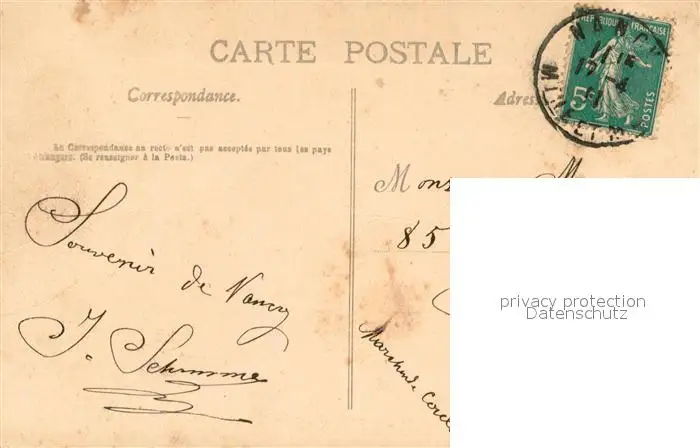 CARTE POSTALE
Correspondance.
La Correspondance au recto n'est pas acceptée par tous les pays
étrangers. (Se renseigner à la Poste.)
Souvenir
de Nancy
J.
RÉPUBLIQUE FRANÇAISE
5
POSTES
NANCY
MEURTHE-ET-M
Adres
Mons M
85
Marchand de
privacy protection
Datenschutz